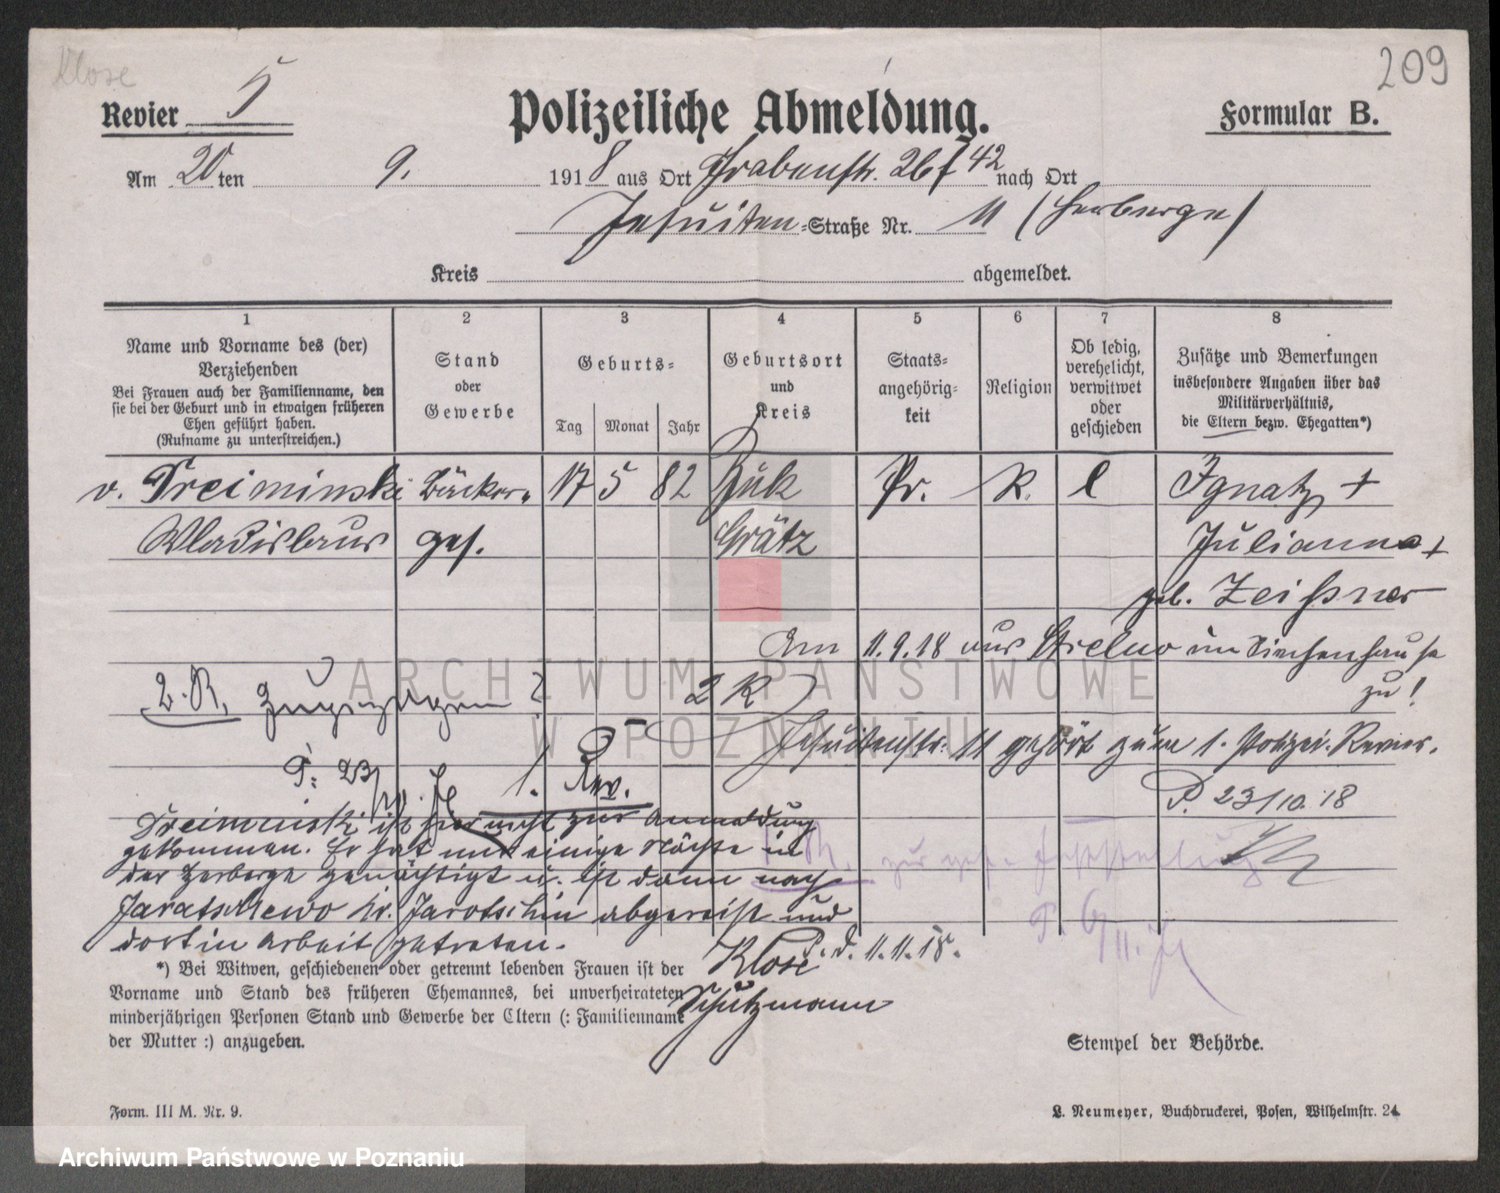 Klose
209
Revier 5
Polizeiliche Abmeldung.
Formular B.
Am 20 ten 9. 1918 aus Ort Grabenstr. 26 42 nach Ort
Jesuiten=Straße Nr. 11 (Herberge)
Kreis abgemeldet.
1 2 3 4 5 6 7 8
Name und Vorname des (der)
Verziehenden
Bei Frauen auch der Familienname, den
sie bei der Geburt und in etwaigen früheren
Ehen geführt haben.
(Rufname zu unterstreichen.)
Stand
oder
Gewerbe
Geburts=
Tag Monat Jahr
Geburtsort
und
Kreis
Staats=
angehörig=
keit
Religion
Ob ledig,
verehelicht,
verwitwet
oder
geschieden
Zusätze und Bemerkungen
insbesondere Angaben über das
Militärverhältnis,
die Eltern bezw. Ehegatten*)
v. Dreiminski Bäcker= 17 5 82 Buk Pr. K. l Ignatz +
Wladislaus ges. Grätz Julianna +
geb. Zeißner
Am 11.9.18 aus Strelno im Siechenhause
zu!
2. R. zugezogen? 2 R
Jesuitenstr. 11 gehört zum 1. Polizei-Revier.
P. 23/10. 18
1. Rev.
Dreiminski ist hier nicht zur Anmeldung
gekommen. Er hat nur einige Nächte in
der Herberge genächtigt u. ist dann nach
Jaratschewo Kr. Jarotschin abgereist und
dort in Arbeit getreten.
P. d. 11.11.18.
Klose
Schutzmann
*) Bei Witwen, geschiedenen oder getrennt lebenden Frauen ist der
Vorname und Stand des früheren Ehemannes, bei unverheirateten
minderjährigen Personen Stand und Gewerbe der Eltern (: Familienname
der Mutter :) anzugeben.
Stempel der Behörde.
Form. III M. Nr. 9.
L. Neumeyer, Buchdruckerei, Posen, Wilhelmstr. 24
ARCHIWUM PAŃSTWOWE
W POZNANIU
Archiwum Państwowe w Poznaniu